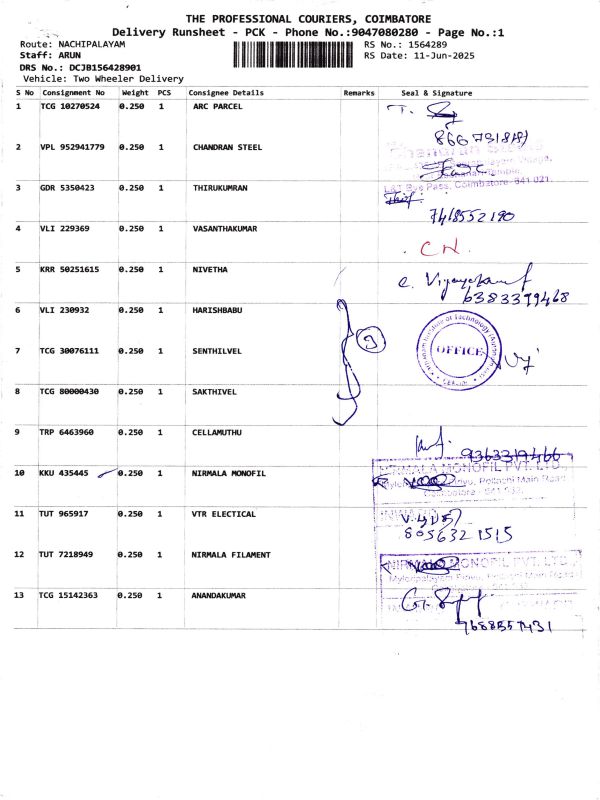 THE PROFESSIONAL COURIERS, COIMBATORE
Delivery Runsheet - PCK - Phone No.:9047080280 - Page No.:1
Route: NACHIPALAYAM RS No.: 1564289
Staff: ARUN RS Date: 11-Jun-2025
DRS No.: DCJB156428901
Vehicle: Two Wheeler Delivery
S No Consignment No Weight PCS Consignee Details Remarks Seal & Signature
1 TCG 10270524 0.250 1 ARC PARCEL T.
2 VPL 952941779 0.250 1 CHANDRAN STEEL
L&T Bye Pass, Coimbatore-641 021.
3 GDR 5350423 0.250 1 THIRUKUMRAN
7418552190
4 VLI 229369 0.250 1 VASANTHAKUMAR
5 KRR 50251615 0.250 1 NIVETHA
6383399468
6 VLI 230932 0.250 1 HARISHBABU
7 TCG 30076111 0.250 1 SENTHILVEL OFFICE
8 TCG 80000430 0.250 1 SAKTHIVEL
9 TRP 6463960 0.250 1 CELLAMUTHU
9363319466
NIRMALA MONOFIL PVT. LTD.,
10 KKU 435445 0.250 1 NIRMALA MONOFIL Pollachi Main Road
Coimbatore - 641 032.
11 TUT 965917 0.250 1 VTR ELECTICAL
8056321515
12 TUT 7218949 0.250 1 NIRMALA FILAMENT
NIRMALA MONOFIL PVT. LTD.,
13 TCG 15142363 0.250 1 ANANDAKUMAR